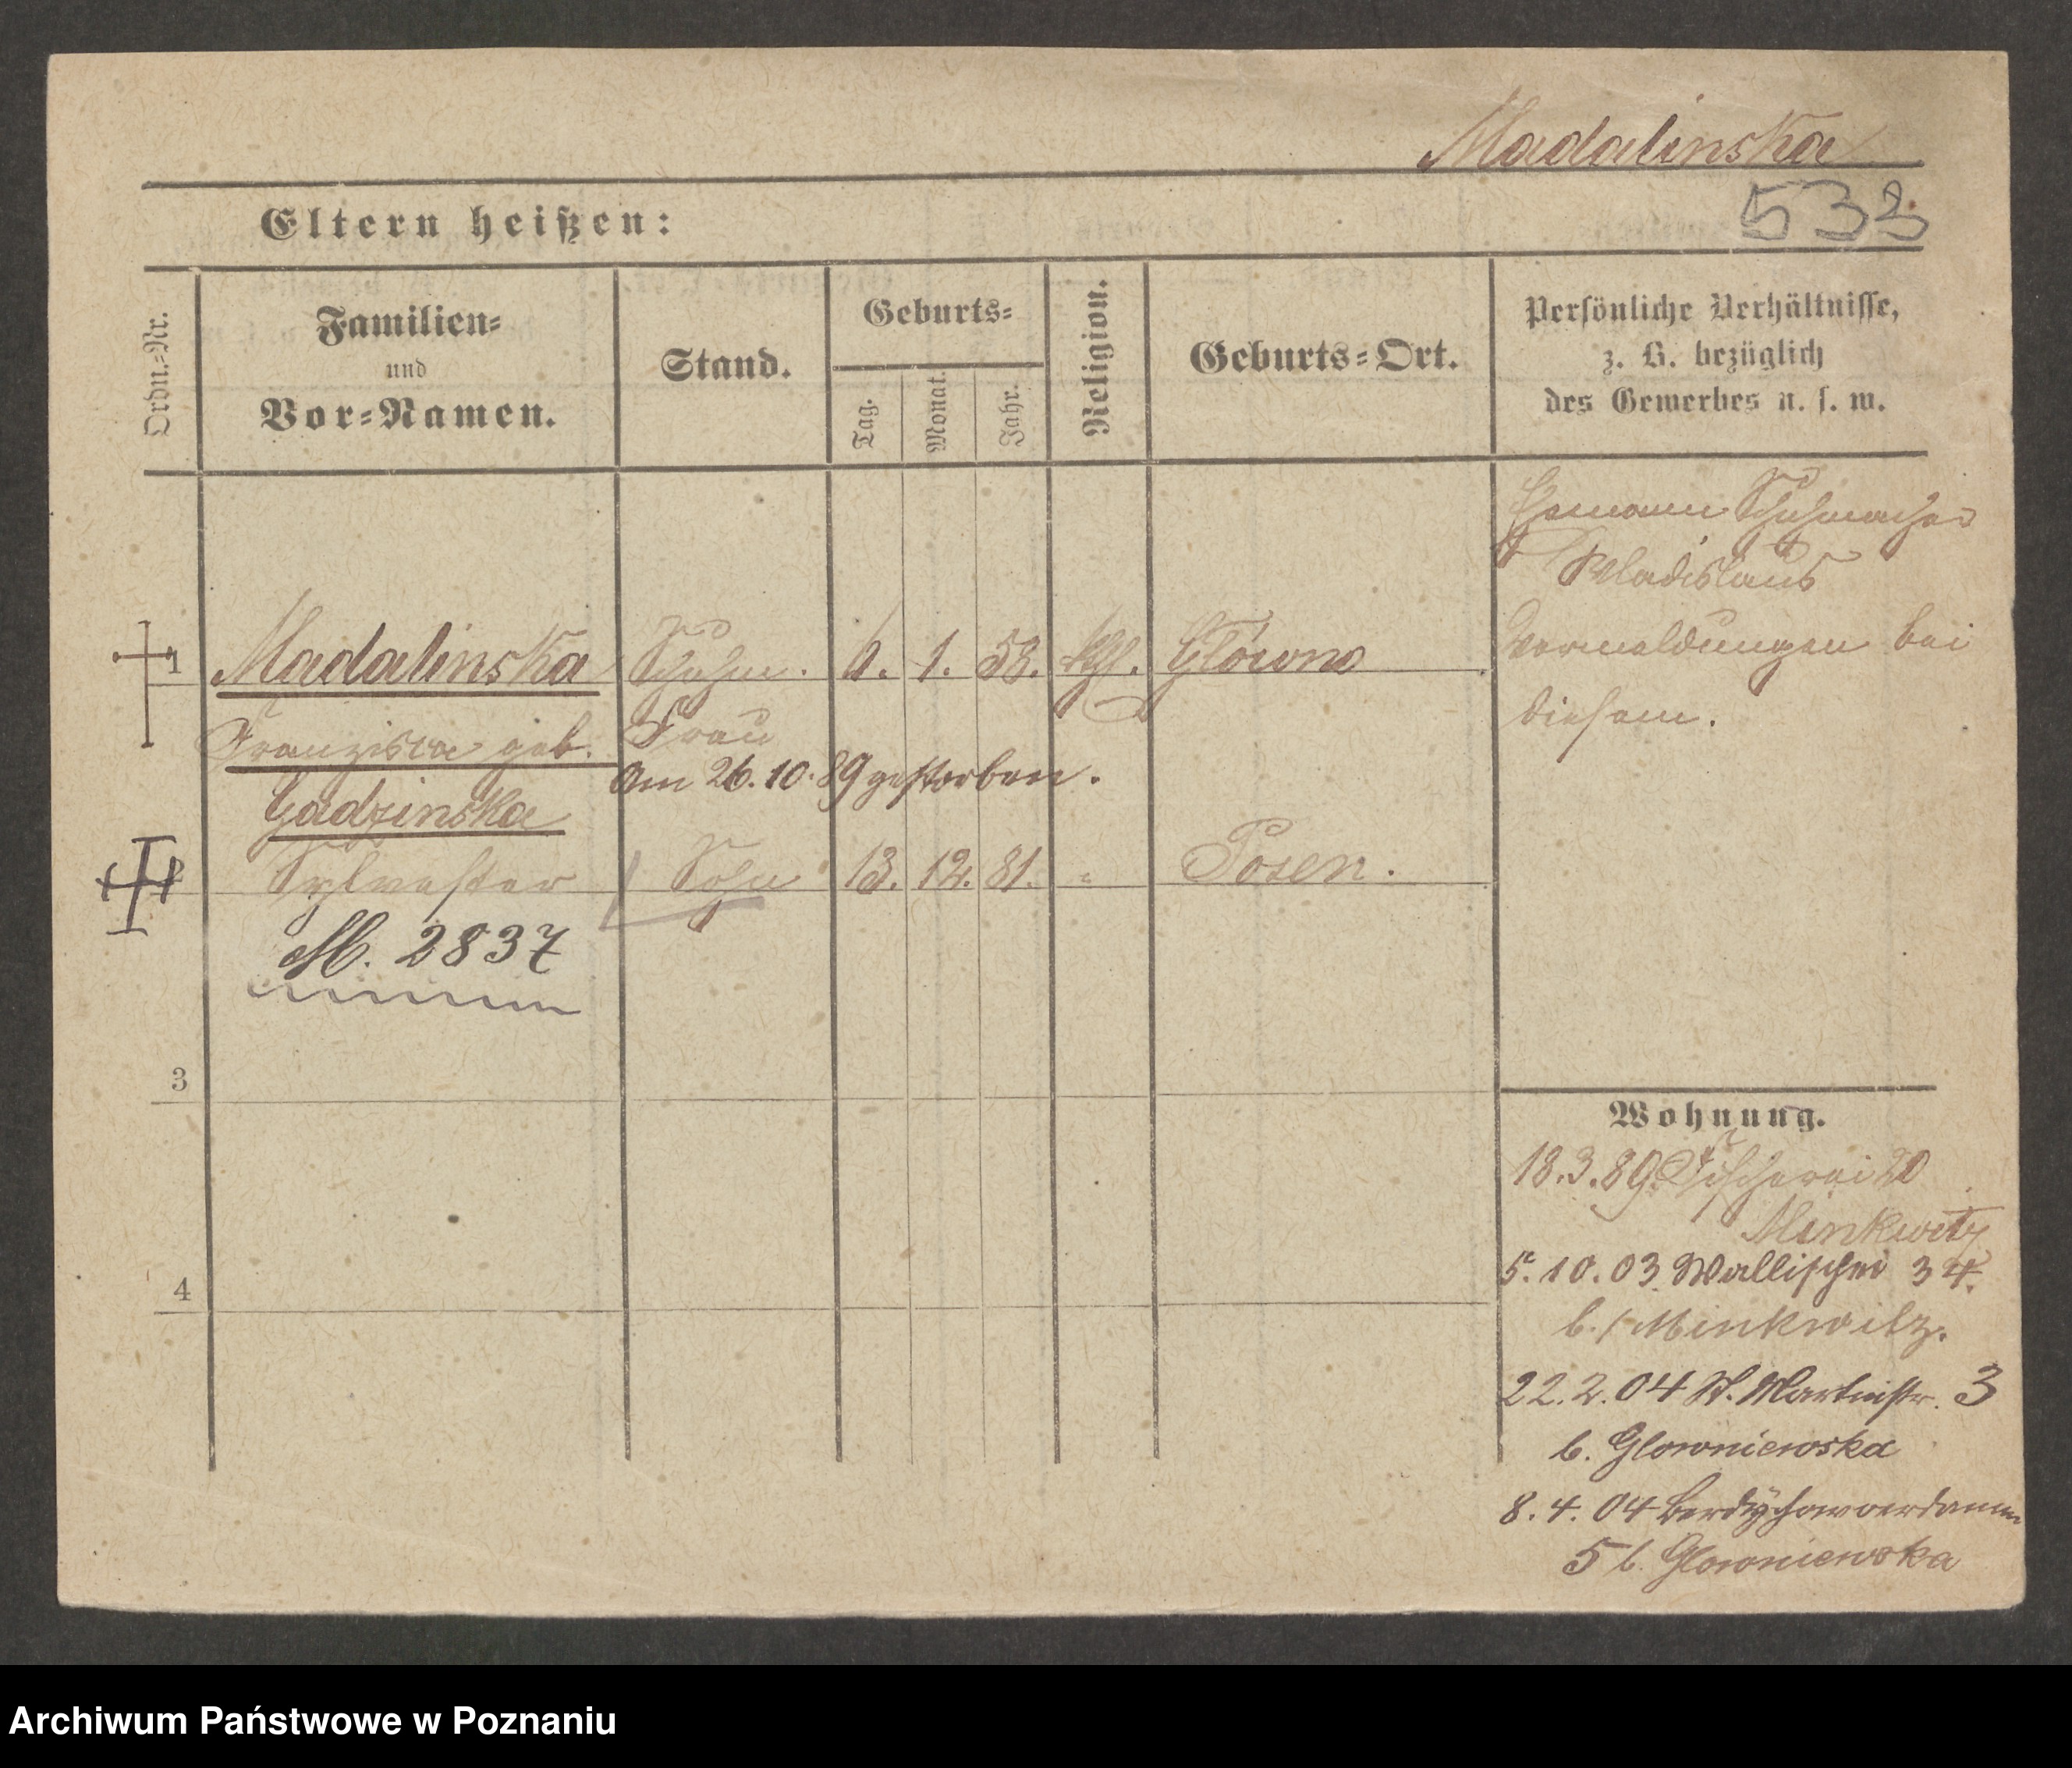 Madalinska
532
Eltern heißen:
Ordn.=Nr.
Familien=
und
Vor=Namen.
Stand.
Geburts=
Tag.
Monat.
Jahr.
Religion.
Geburts=Ort.
Persönliche Verhältnisse,
z. B. bezüglich
des Gewerbes u. s. w.
Ehemann Schuhmacher
Wladislaus
Vormeldungen bei
diesem.
1 Madalinska Schuhm. 6. 1. 53. kth. Glówno
Franziska geb. Frau
am 26.10.89 gestorben.
Gadzinska
2 Sylvester Sohn 13. 12. 81. " Posen.
M. 2837
3
4
Wohnung.
18.3.89. Fischerei 20
Minkwitz
5.10.03. Wallischei 34.
b./Minkwitz.
22.2.04 St. Martinstr. 3
b. Glowniewska
8.4.04 Berdychowoerdamm
5 b. Glowniewska
Archiwum Państwowe w Poznaniu